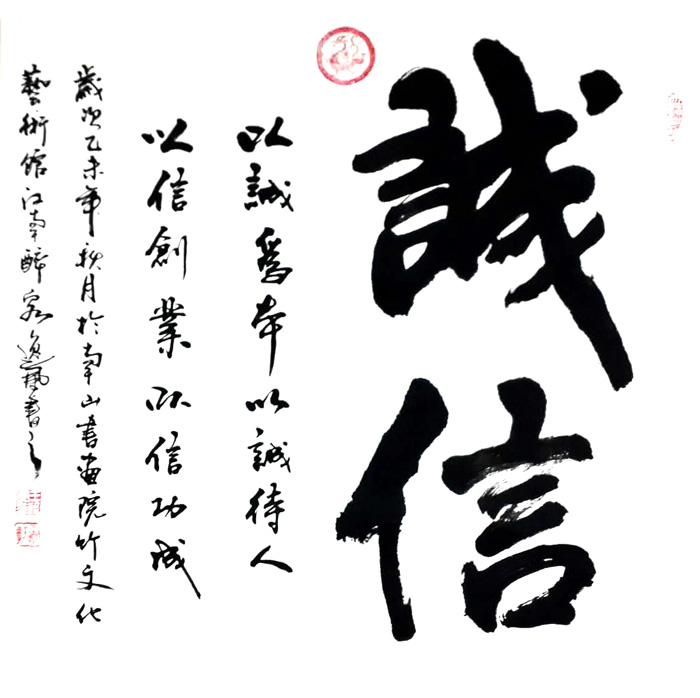 誠信
以誠為本以誠待人
以信創業以信功成
歲次乙未年秋月於南山書畫院竹文化
藝術館江南醉客逸風書之